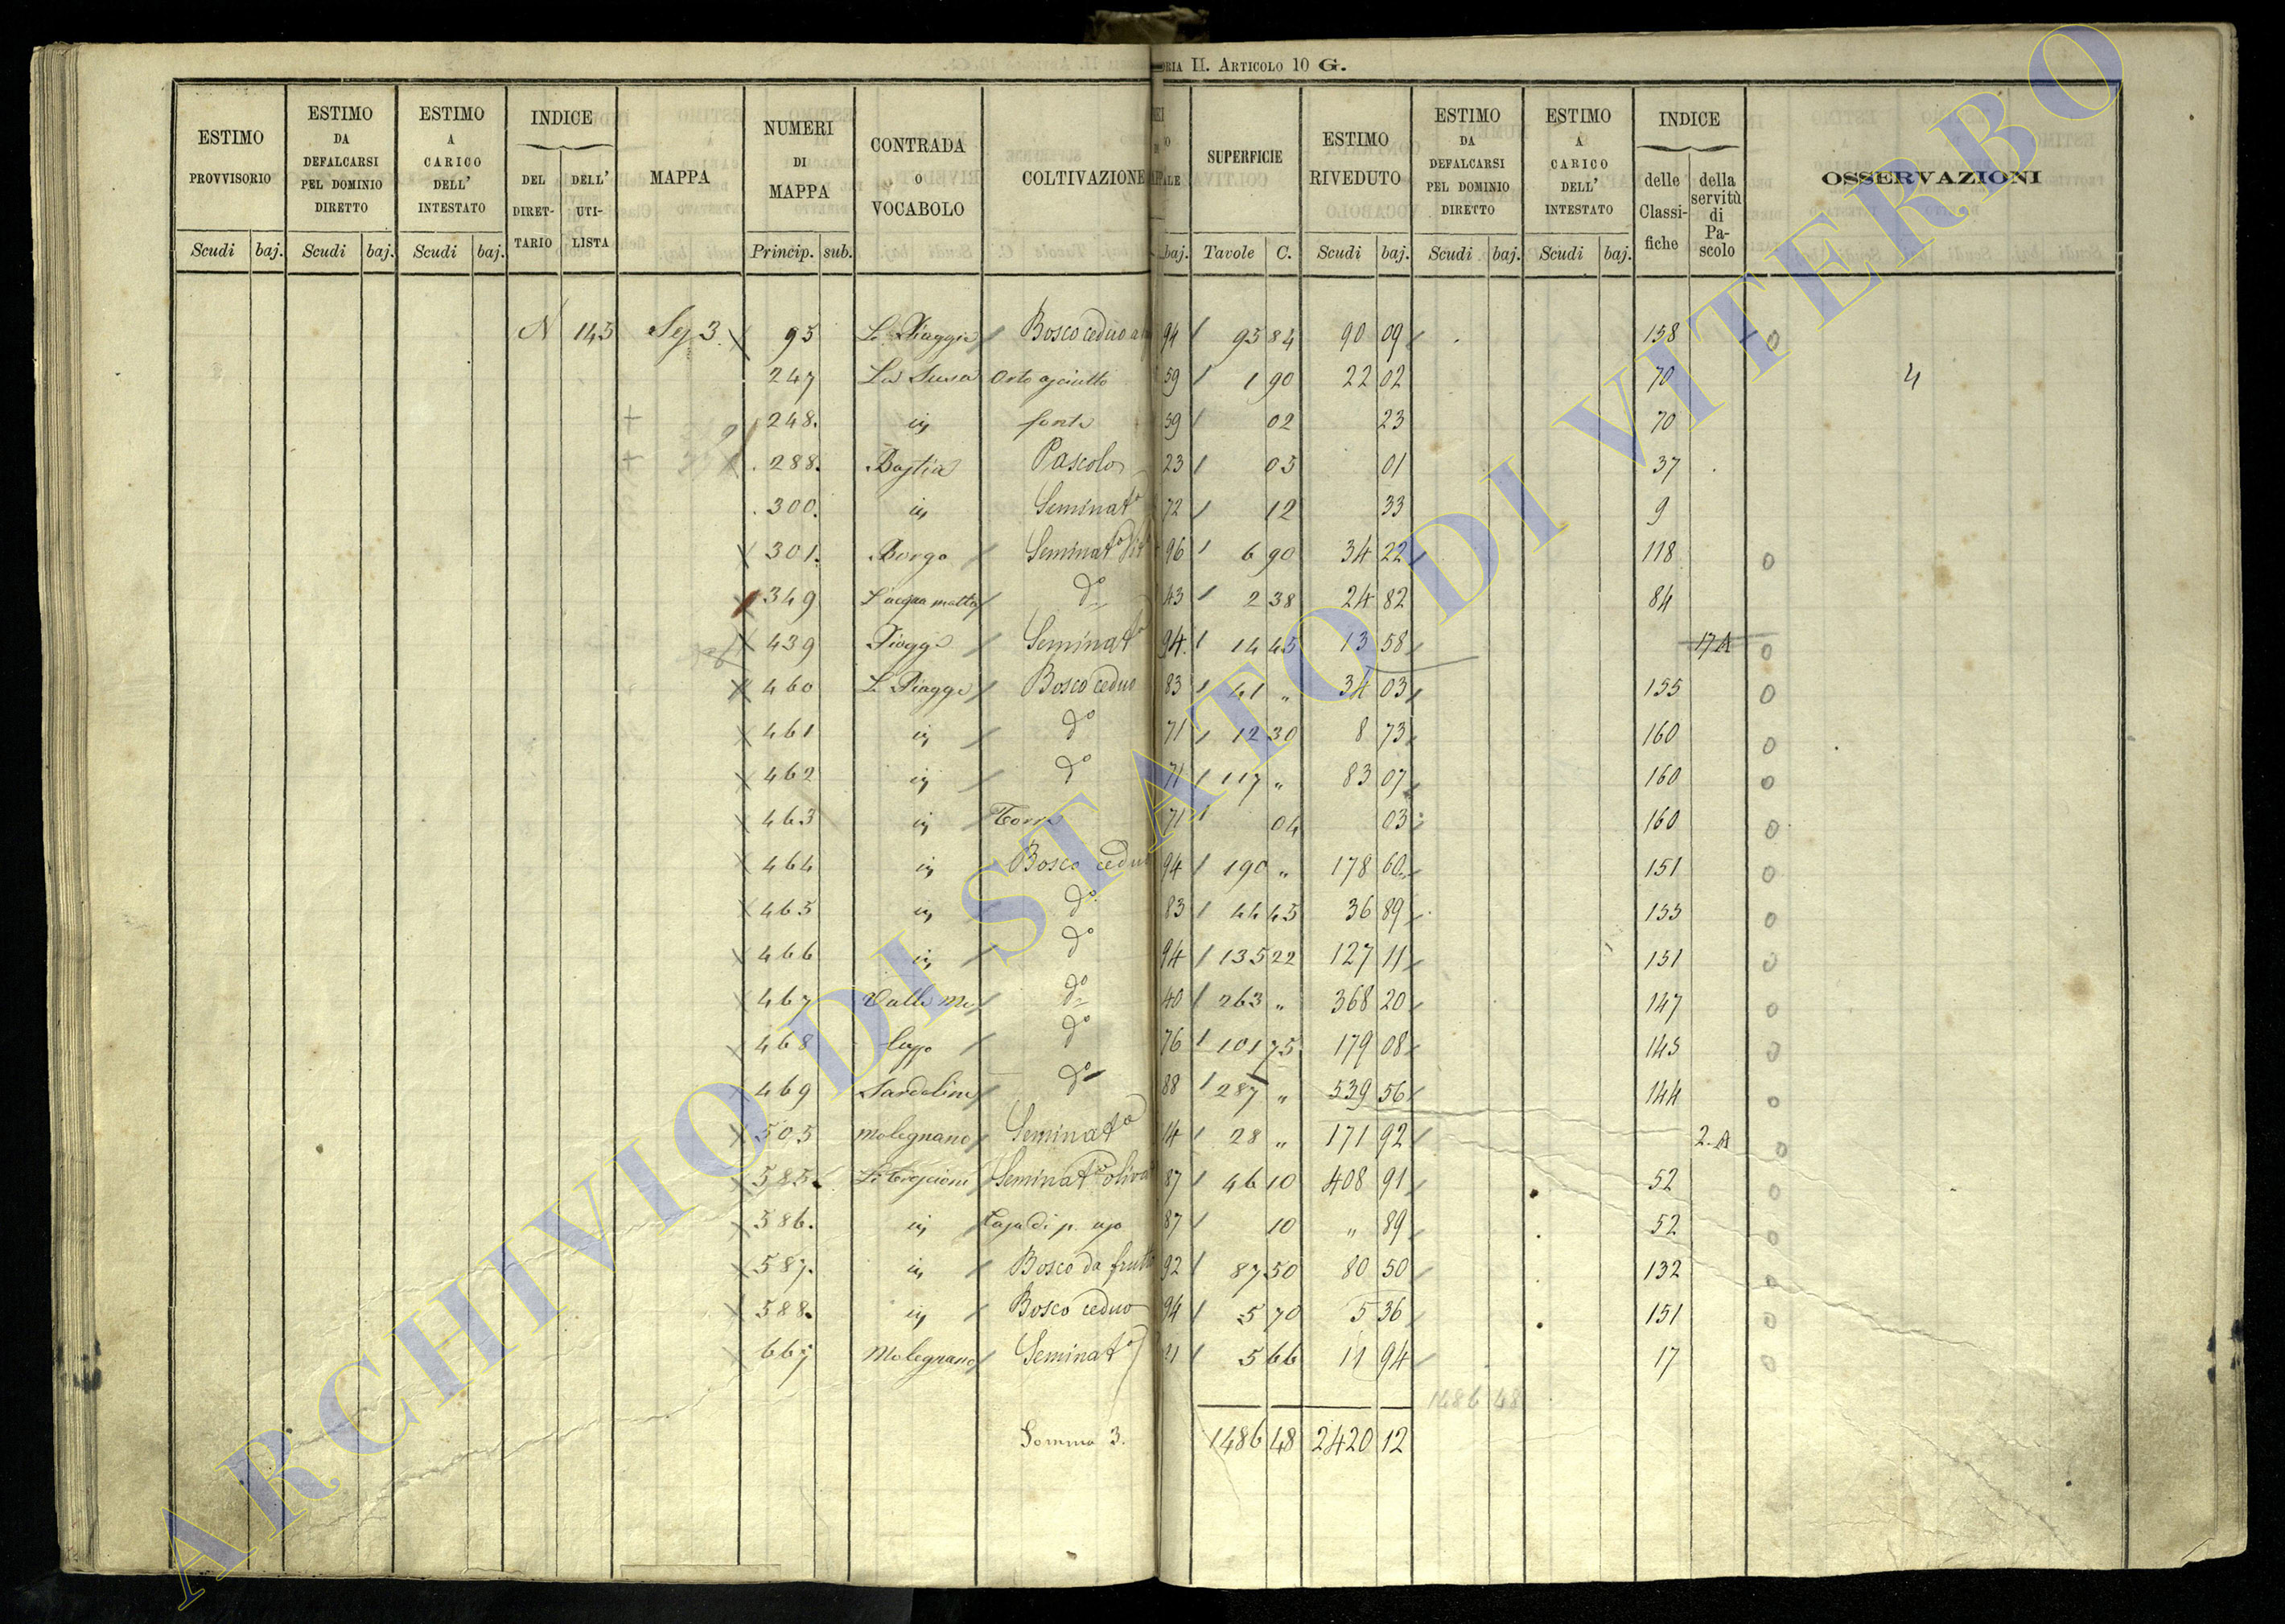 ORIA II. ARTICOLO 10 G.
ESTIMO PROVVISORIO Scudi baj.
ESTIMO DA DEFALCARSI PEL DOMINIO DIRETTO Scudi baj.
ESTIMO A CARICO DELL' INTESTATO Scudi baj.
INDICE DEL DIRET-TARIO DELL' UTI-LISTA
MAPPA
NUMERI DI MAPPA Princip. sub.
CONTRADA O VOCABOLO
COLTIVAZIONE
baj.
SUPERFICIE Tavole C.
ESTIMO RIVEDUTO Scudi baj.
ESTIMO DA DEFALCARSI PEL DOMINIO DIRETTO Scudi baj.
ESTIMO A CARICO DELL' INTESTATO Scudi baj.
INDICE delle Classi-fiche della servitù di Pa-scolo
OSSERVAZIONI
N 145 Sez 3. 95 Le Piaggie Bosco ceduo 94 95 84 90 09 158 0
247 Orto asciutto 59 1 90 22 02 70 4
248. in fonte 59 02 23 70
288. Bastia Pascolo 23 05 01 37
300. in Seminato 72 12 33 9
301. Borgo Seminato Vit 96 6 90 34 22 118 0
349 L'acqua matta do 43 2 38 24 82 84
439 Piagge Seminato 94. 14 45 13 58 17 A 0
460 Le Piagge Bosco ceduo 83 41 " 34 03 155 0
461 in do 71 12 30 8 73 160 0
462 in do 71 117 " 83 07 160 0
463 in Torre 71 04 03 160 0
464 in Bosco ceduo 94 190 " 178 60 151 0
465 in do 83 44 45 36 89 155 0
466 in do 94 135 22 127 11 151 0
467 Valle do 40 263 " 368 20 147 0
468 do 76 101 75 179 08 145 0
469 Sardoline do 88 287 " 539 56 144 0
505 Molegnano Seminato 14 28 " 171 92 2. A 0
585. Seminato oliva 87 46 10 408 91 52 0
586. in Casa di p. uso 87 10 " 89 52 0
587. in Bosco da frutto 92 87 50 80 50 132 0
588. in Bosco ceduo 94 5 70 5 36 151 0
667 Molegnano Seminato 21 5 66 11 94 17 0
1486 48
Somma 3. 1486 48 2420 12
ARCHIVIO DI STATO DI VITERBO